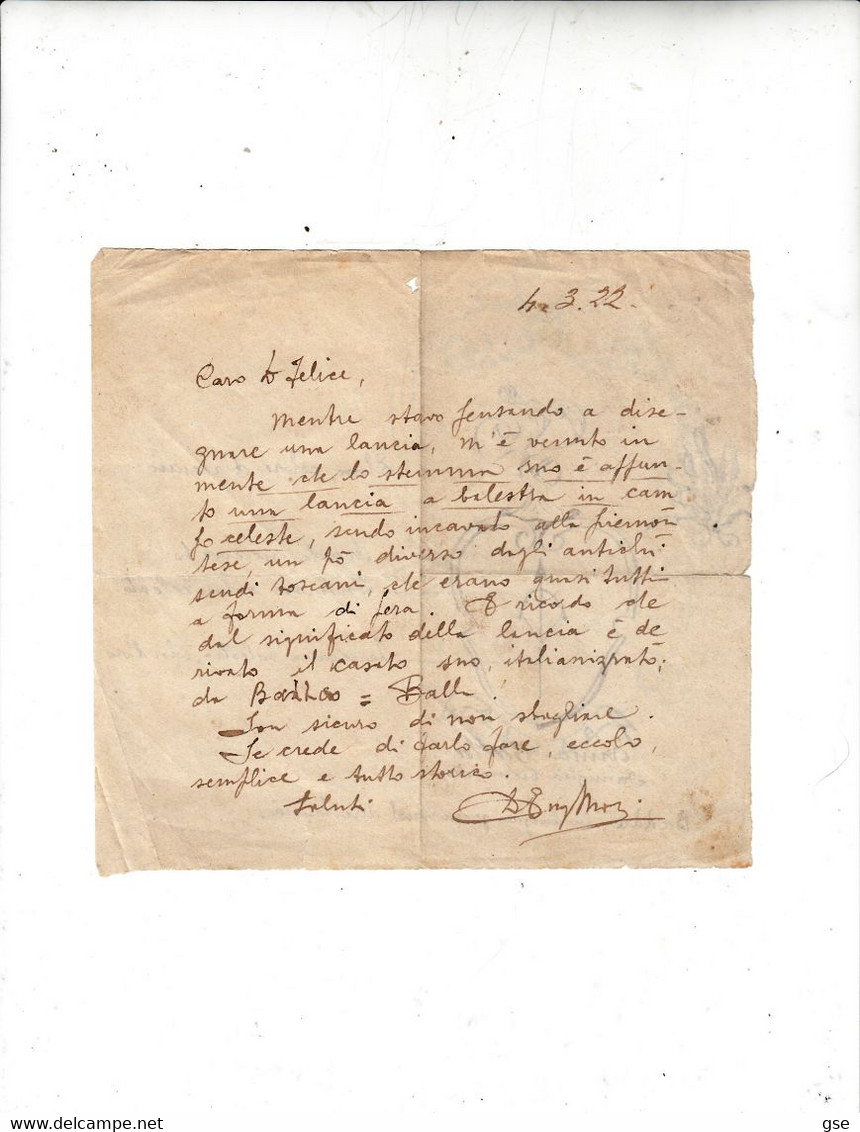 4.3.22.
Caro D Felice,
Mentre stavo pensando a dise-
gnare una lancia, m'è venuto in
mente che lo stemma suo è appun-
to una lancia a balestra in cam
po celeste, scudo incavato alla piemon
tese, un pò diverso dagli antichi
scudi toscani, che erano quasi tutti
a forma di pera. E ricordo che
dal significato della lancia è de
rivato il casato suo, italianizzato,
da = Balla.
Son sicuro di non sbagliare.
Se crede di farlo fare, eccolo,
semplice e tutto storico.
Saluti
gse